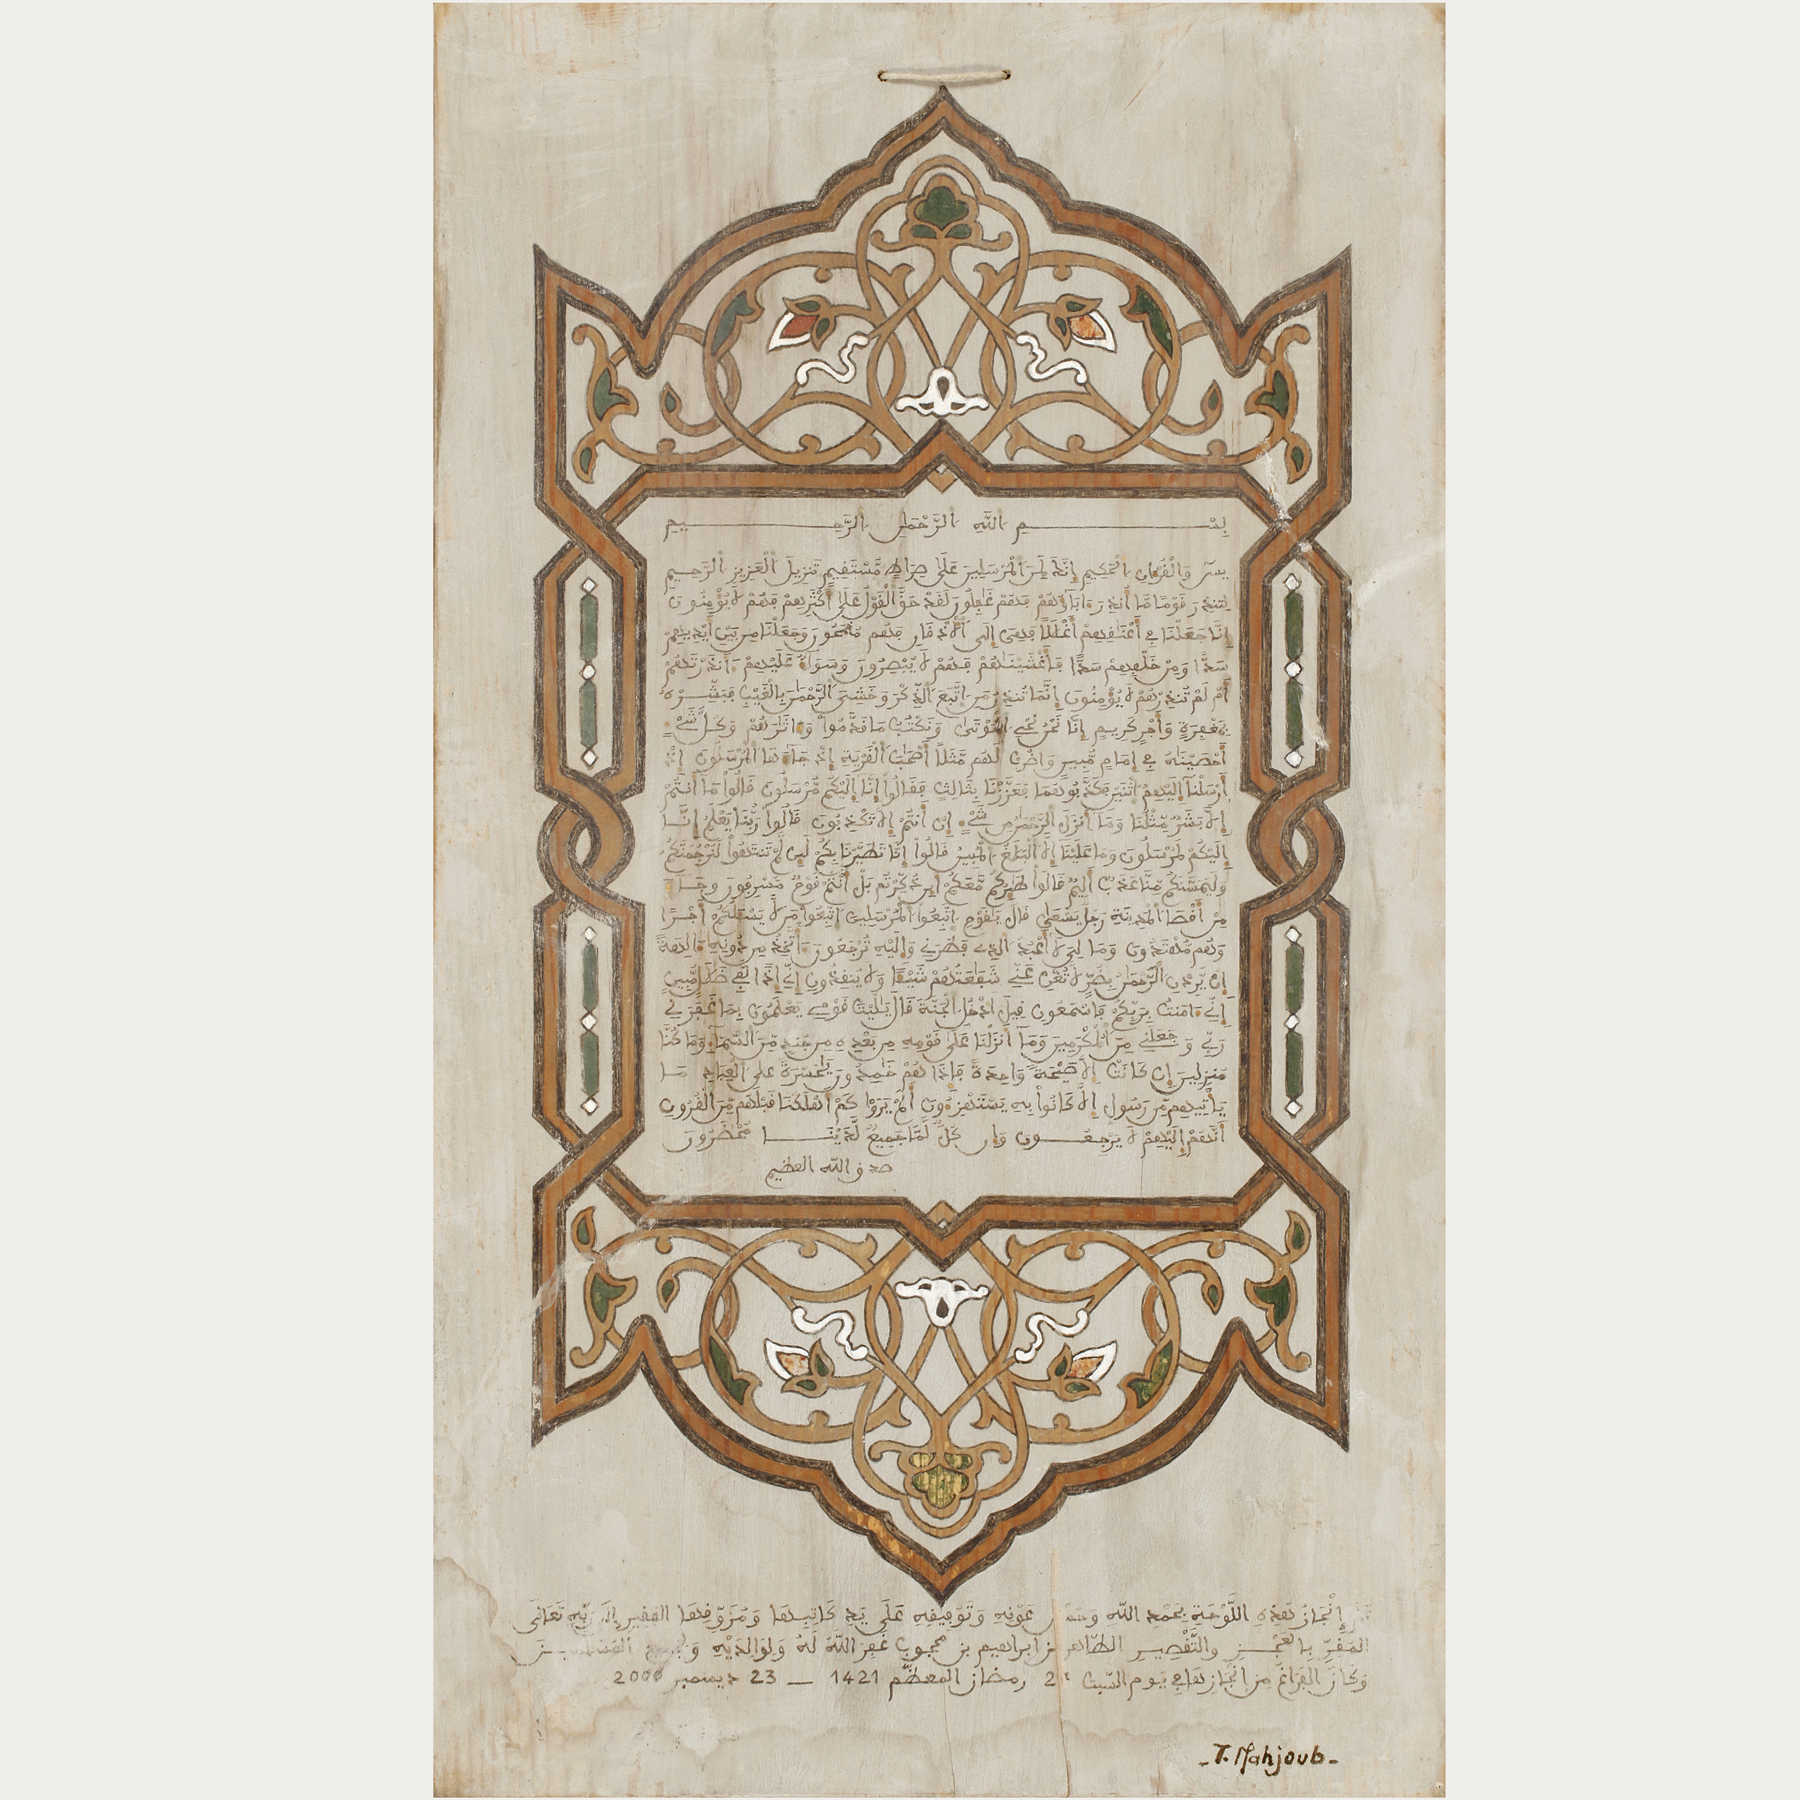 بسم الله الرحمن الرحيم
يس والقرءان الحكيم إنك لمن المرسلين على صراط مستقيم تنزيل العزيز الرحيم
لتنذر قوما ما أنذر ءاباؤهم فهم غافلون لقد حق القول على أكثرهم فهم لا يؤمنون
إنا جعلنا في أعناقهم أغللا فهي إلى الاذقان فهم مقمحون وجعلنا من بين أيديهم
سدا ومن خلفهم سدا فأغشيناهم فهم لا يبصرون وسواء عليهم ءانذرتهم
أم لم تنذرهم لا يؤمنون إنما تنذر من اتبع الذكر وخشي الرحمن بالغيب فبشره
بمغفرة وأجر كريم إنا نحن نحي الموتى ونكتب ما قدموا وءاثارهم وكل شيء
أحصيناه في إمام مبين واضرب لهم مثلا أصحاب القرية إذ جاءها المرسلون إذ
أرسلنا إليهم اثنين فكذبوهما فعززنا بثالث فقالوا إنا إليكم مرسلون قالوا ما أنتم
إلا بشر مثلنا وما أنزل الرحمن من شيء إن أنتم إلا تكذبون قالوا ربنا يعلم إنا
إليكم لمرسلون وما علينا إلا البلغ المبين قالوا إنا تطيرنا بكم لين لم تنتهوا لنرجمنكم
وليمسنكم منا عذاب أليم قالوا طيركم معكم أين ذكرتم بل أنتم قوم مسرفون وجاء
من أقصا المدينة رجل يسعى قال يقوم اتبعوا المرسلين اتبعوا من لا يسئلكم أجرا
وهم مهتدون وما لي لا أعبد الذي فطرني وإليه ترجعون ءأتخذ من دونه ءالهة
إن يردن الرحمن بضر لا تغن عني شفاعتهم شيئا ولا ينقذون إني إذا لفي ظلل مبين
إني ءامنت بربكم فاسمعون قيل ادخل الجنة قال يليت قومي يعلمون بما غفر لي
ربي وجعلني من المكرمين وما أنزلنا على قومه من بعده من جند من السماء وما كنا
منزلين إن كانت إلا صيحة واحدة فإذا هم خامدون يحسرة على العباد ما
يأتيهم من رسول إلا كانوا به يستهزءون ألم يروا كم أهلكنا قبلهم من القرون
أنهم إليهم لا يرجعون وإن كل لما جميع لدينا محضرون
صدق الله العظيم
تم إنجاز هذه اللوحة بحمد الله وحسن عونه وتوفيقه على يد كاتبها ومزوقها الفقير إلى ربه تعالى
المقر بالعجز والتقصير الطاهر بن ابراهيم بن محجوب غفر الله له ولوالديه ولجميع المسلمين
وكان الفراغ من انجازها في يوم السبت رمضان المعظم 1421 — 23 ديسمبر 2000
- T. Mahjoub -